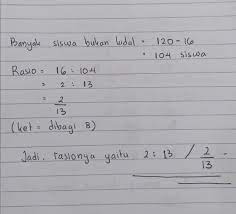 Banyak siswa bukan kidal = 120 - 16
= 104 siswa
Rasio = 16 : 104
= 2 : 13
= 2/13
(ket = dibagi 8)
Jadi, rasionya yaitu 2 : 13 / 2/13